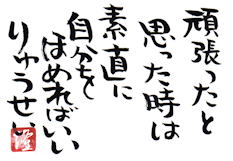 頑張ったと
思った時は
素直に
自分を
ほめればいい
りゅうせい